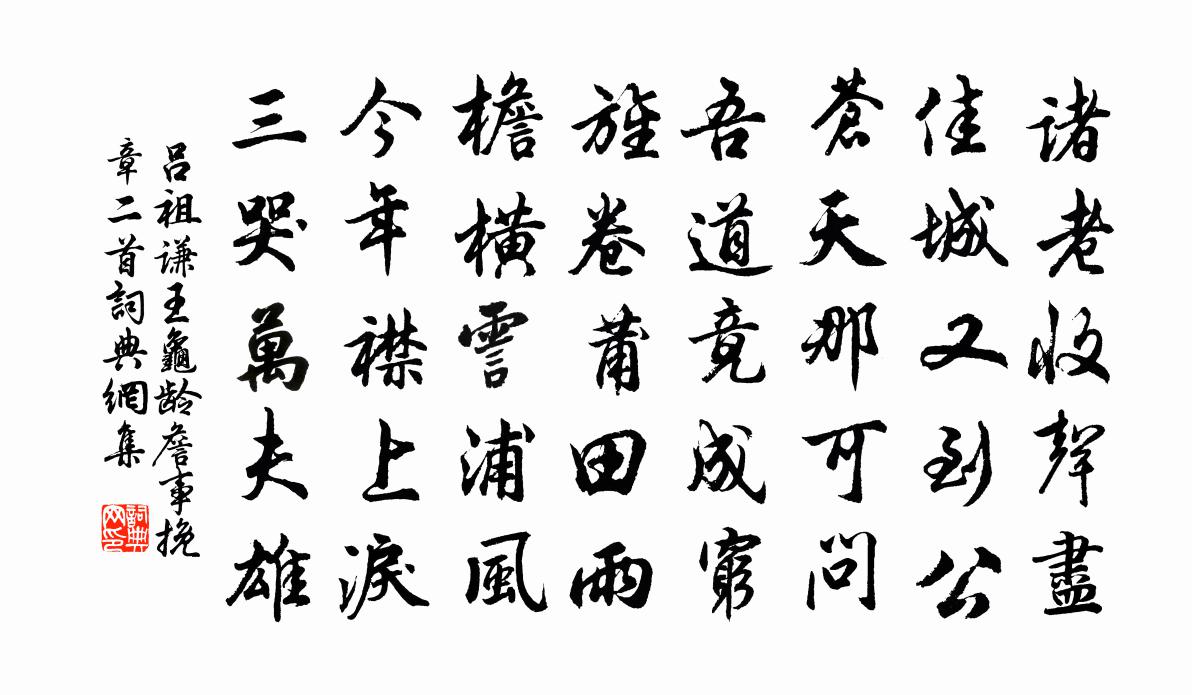 諸老收聲盡
佳城又到公
蒼天那可問
吾道竟成窮
旌卷莆田雨
檐橫霅浦風
今年襟上淚
三哭萬夫雄
呂祖謙王龜龄詹事挽
章二首詞典網集
詞典网印